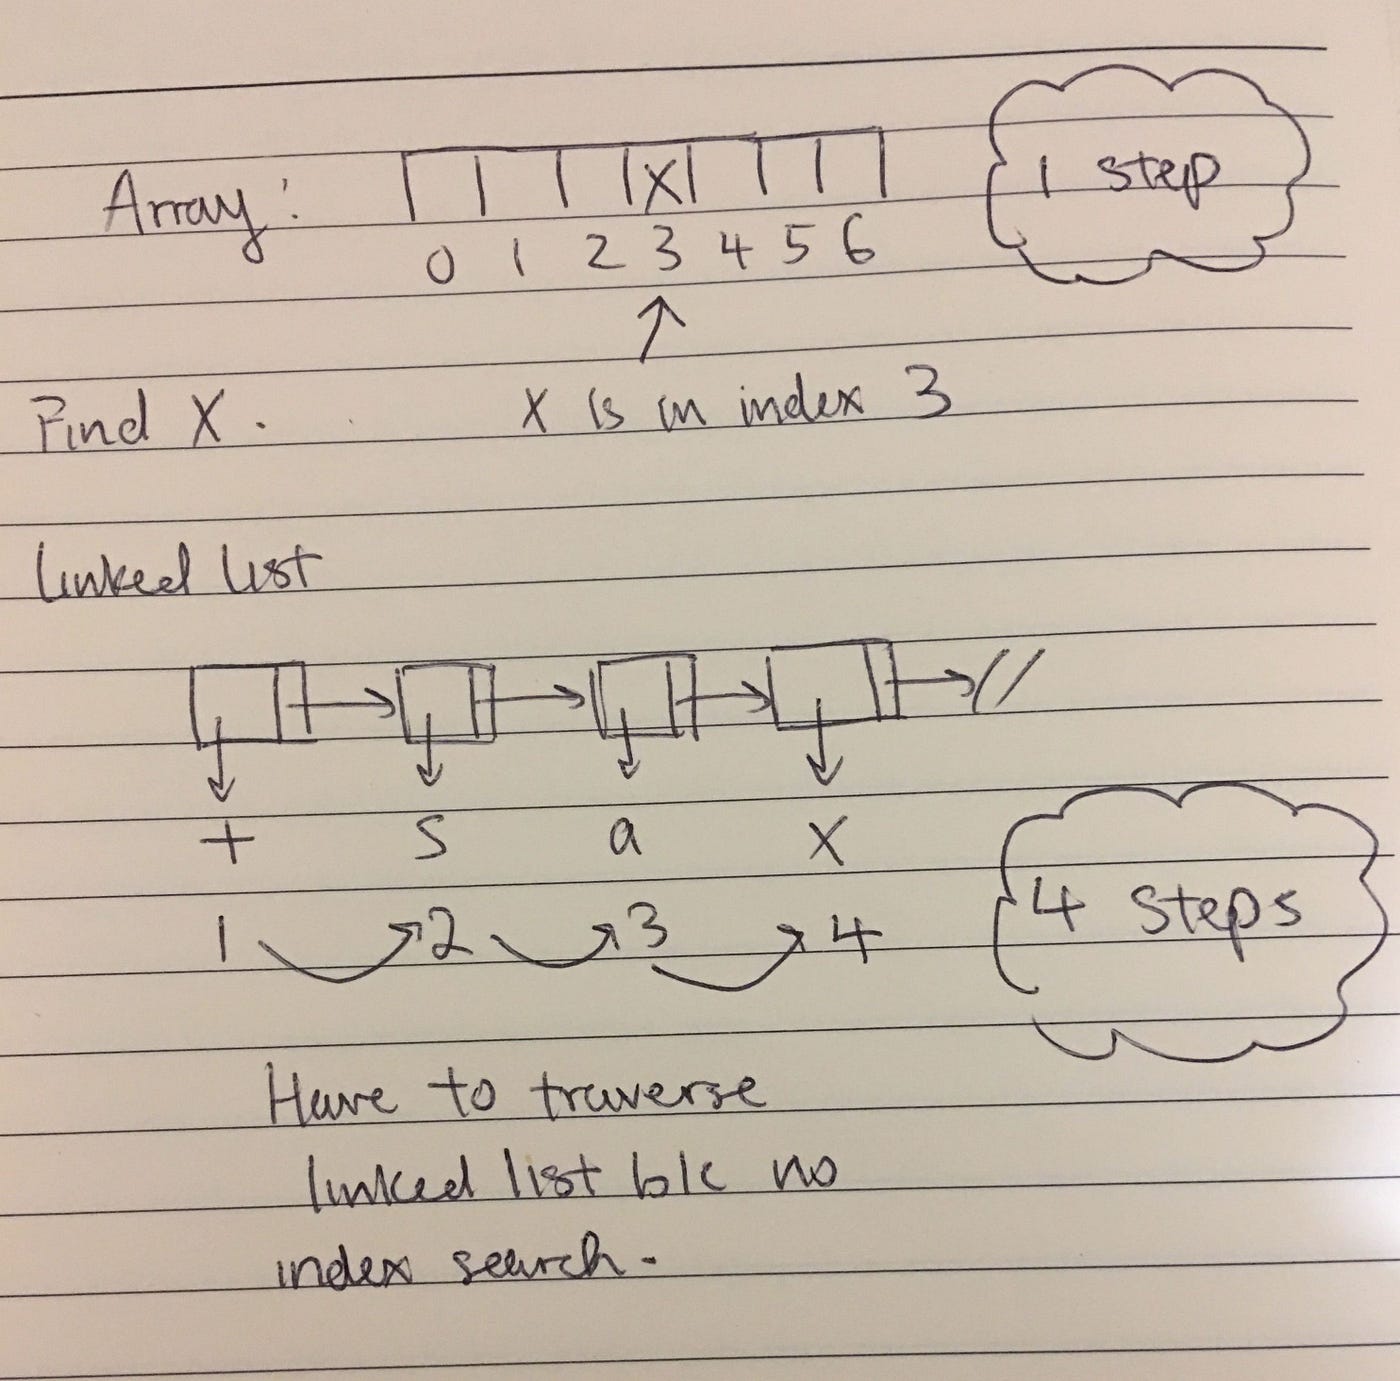 Array:
X
1 step
0 1 2 3 4 5 6
Find X.
X is in index 3
linked list
+ s a X
1 2 3 4
4 steps
Have to traverse
linked list b/c no
index search.